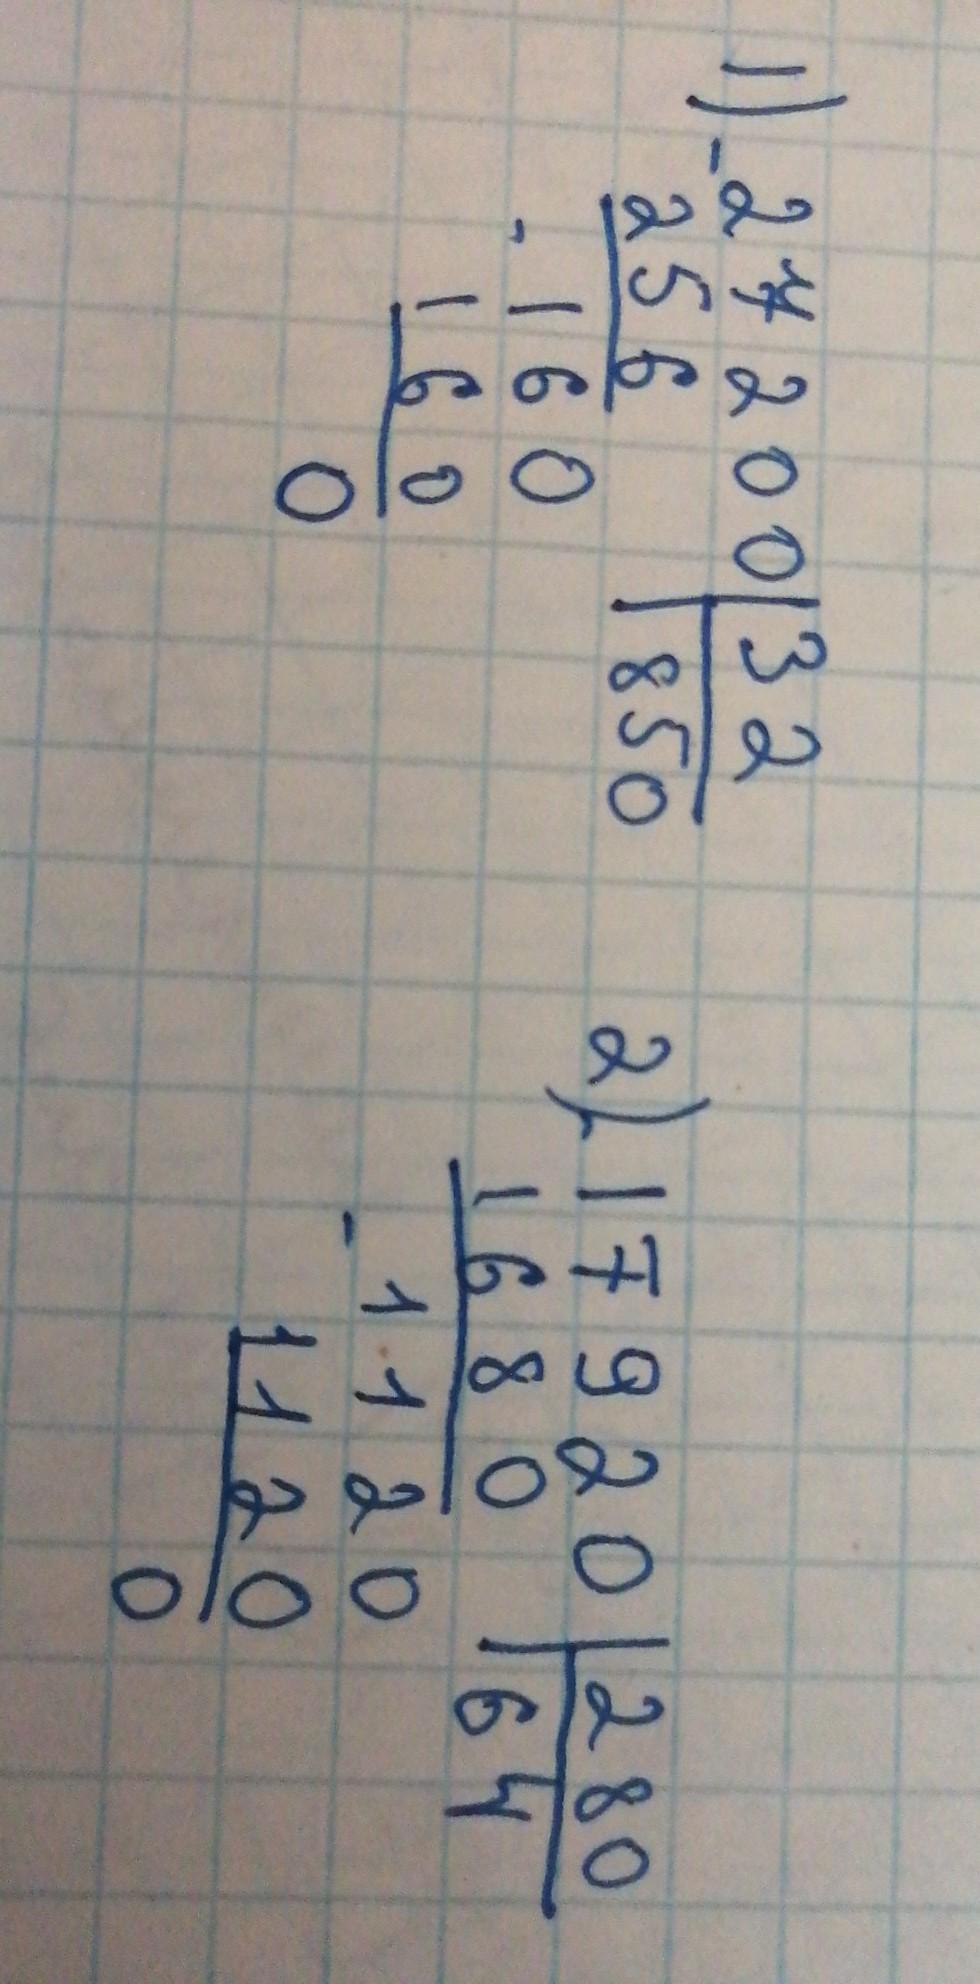 1) - 27200 | 32
256 | 850
- 160
160
0
2) - 17920 | 280
1680 | 64
- 1120
1120
0